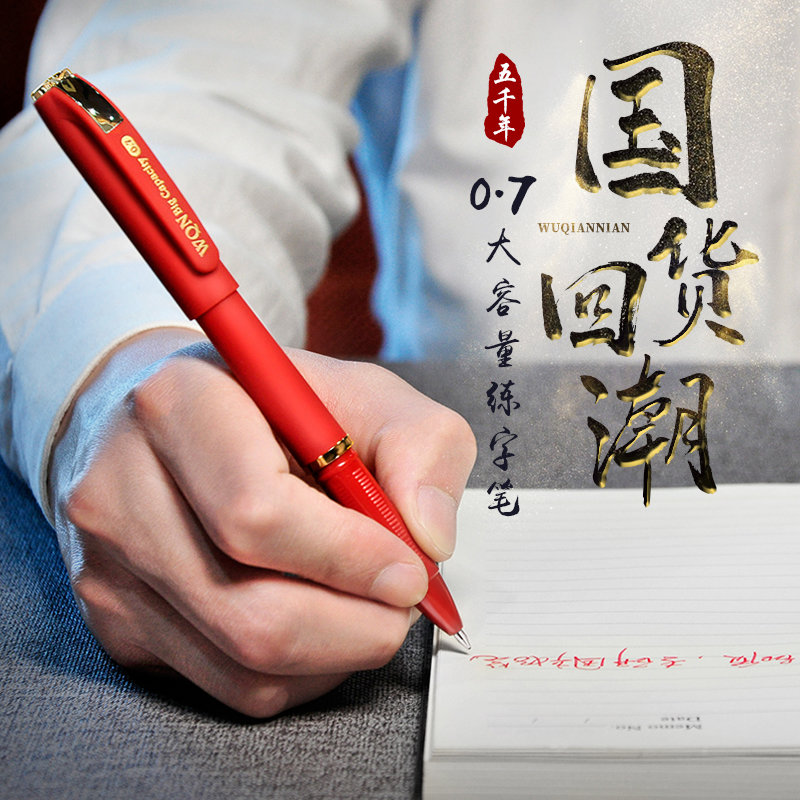 五千年
国货
回潮
WUQIANNIAN
0.7大容量练字笔
WQN Big Capacity 0.7
Memo No.
Date